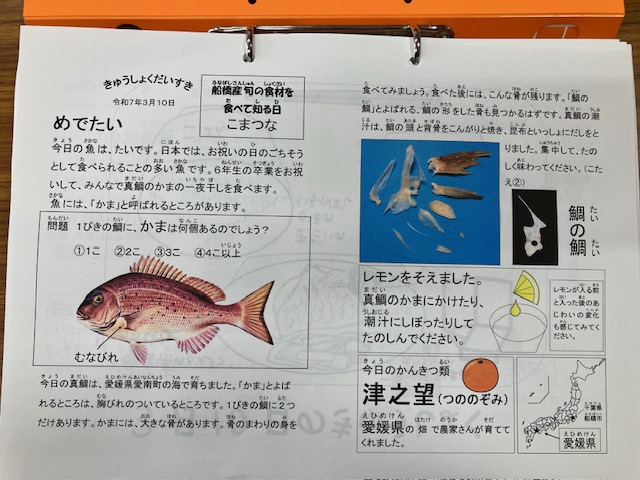 きゅうしょくだいすき
令和7年3月10日
船橋産 旬の食材を
食べて知る日
こまつな
めでたい
今日の魚は、たいです。日本では、お祝いの日のごちそう
として食べられることの多い魚です。6年生の卒業をお祝
いして、みんなで真鯛のかまの一夜干しを食べます。
魚には、「かま」と呼ばれるところがあります。
問題 1ぴきの鯛に、かまは何個あるのでしょう?
①1こ ②2こ ③3こ ④4こ以上
むなびれ
今日の真鯛は、愛媛県愛南町の海で育ちました。「かま」とよば
れるところは、胸びれのついているところです。1ぴきの鯛に2つ
だけあります。かまには、大きな骨があります。骨のまわりの身を
食べてみましょう。食べた後には、こんな骨が残ります。「鯛の
鯛」とよばれる、鯛の形をした骨も見つかるはずです。真鯛の潮
汁は、鯛の頭と背骨をこんがりと焼き、昆布といっしょにだしをと
りました。集中して、たの
しく味わってください。(こた
え②)
鯛の鯛
レモンをそえました。
真鯛のかまにかけたり、
潮汁にしぼったりして
たのしんでください。
レモンが入る前
と入った後のあ
じわいの変化
も感じてみてく
ださい。
今日のかんきつ類
津之望(つののぞみ)
愛媛県の 畑で農家さんが育てて
くれました。
千葉県
船橋市
愛媛県